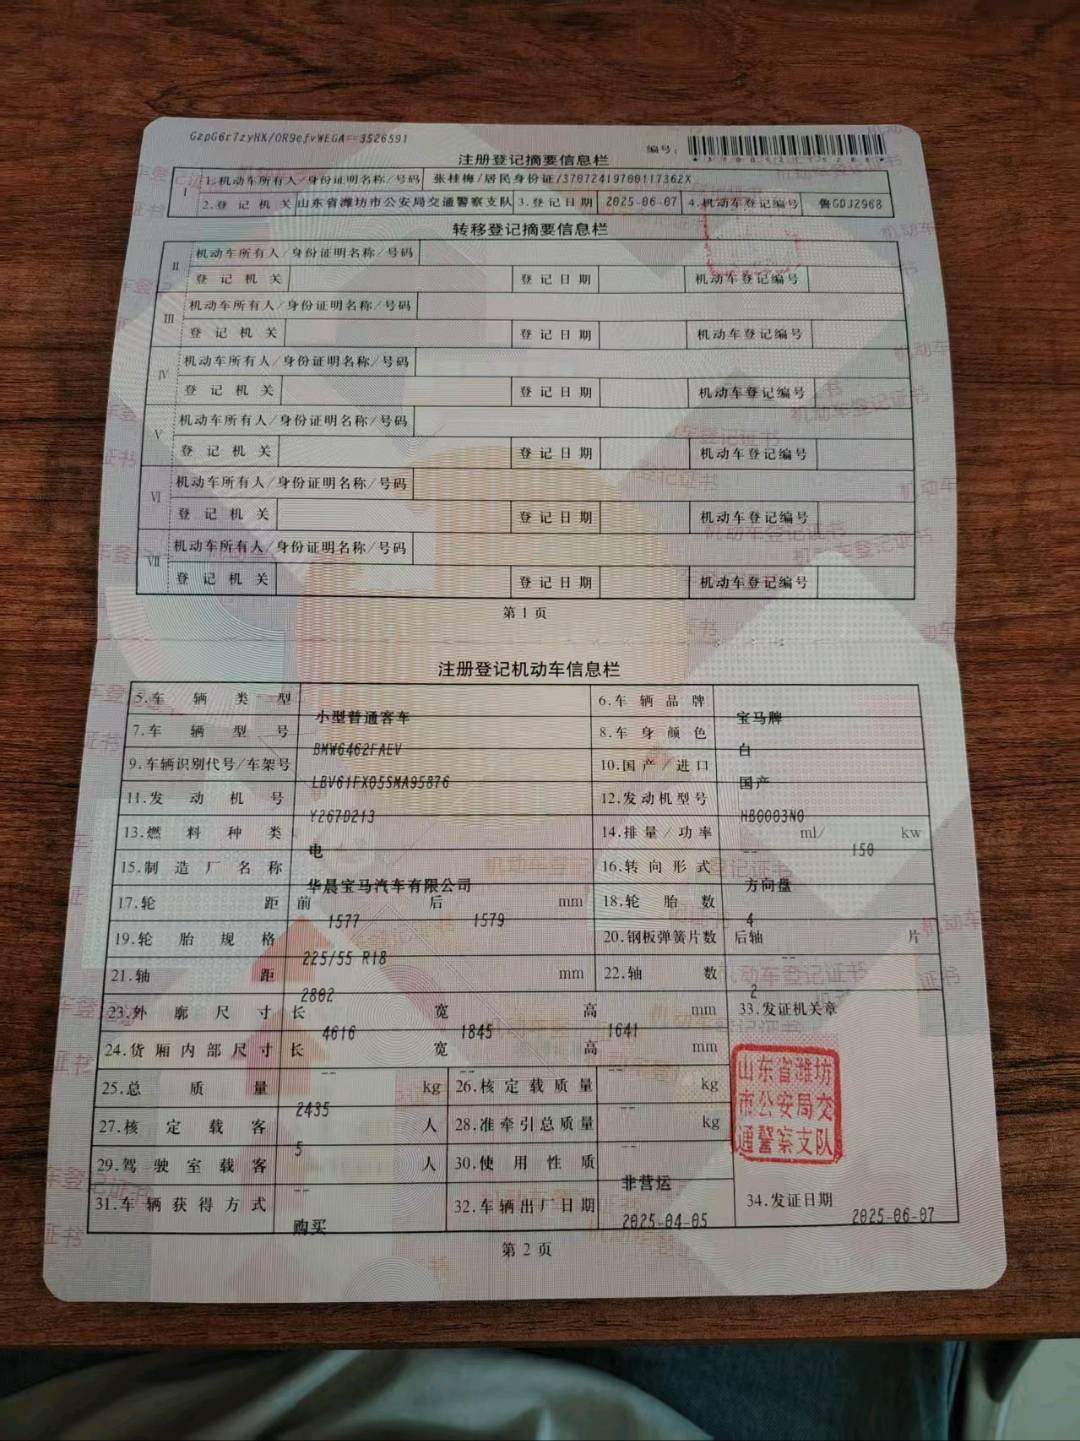 GzpG6r7zyHX/OR9efvWEGA==3526591
编号:
注册登记摘要信息栏
I 1.机动车所有人/身份证明名称/号码 张桂梅/居民身份证/37072419700117362X
2.登记机关 山东省潍坊市公安局交通警察支队 3.登记日期 2025-06-07 4.机动车登记编号 鲁GDJ2968
转移登记摘要信息栏
II 机动车所有人/身份证明名称/号码
登记机关 登记日期 机动车登记编号
III 机动车所有人/身份证明名称/号码
登记机关 登记日期 机动车登记编号
IV 机动车所有人/身份证明名称/号码
登记机关 登记日期 机动车登记编号
V 机动车所有人/身份证明名称/号码
登记机关 登记日期 机动车登记编号
VI 机动车所有人/身份证明名称/号码
登记机关 登记日期 机动车登记编号
VII 机动车所有人/身份证明名称/号码
登记机关 登记日期 机动车登记编号
第1页
注册登记机动车信息栏
5.车辆类型 小型普通客车 6.车辆品牌 宝马牌
7.车辆型号 BMW6462FAEV 8.车身颜色 白
9.车辆识别代号/车架号 LBV61FX05SMA95876 10.国产/进口 国产
11.发动机号 Y267D213 12.发动机型号 HB0003N0
13.燃料种类 电 14.排量/功率 -- ml/ 150 kw
15.制造厂名称 华晨宝马汽车有限公司 16.转向形式 方向盘
17.轮距 前 1577 后 1579 mm 18.轮胎数 4
19.轮胎规格 225/55 R18 20.钢板弹簧片数 后轴 -- 片
21.轴距 2802 mm 22.轴数 2
23.外廓尺寸 长 4616 宽 1845 高 1641 mm 33.发证机关章
24.货厢内部尺寸 长 -- 宽 -- 高 -- mm
25.总质量 2435 kg 26.核定载质量 -- kg
27.核定载客 5 人 28.准牵引总质量 -- kg
29.驾驶室载客 -- 人 30.使用性质 非营运
31.车辆获得方式 购买 32.车辆出厂日期 2025-04-05 34.发证日期 2025-06-07
山东省潍坊
市公安局交
通警察支队
第2页